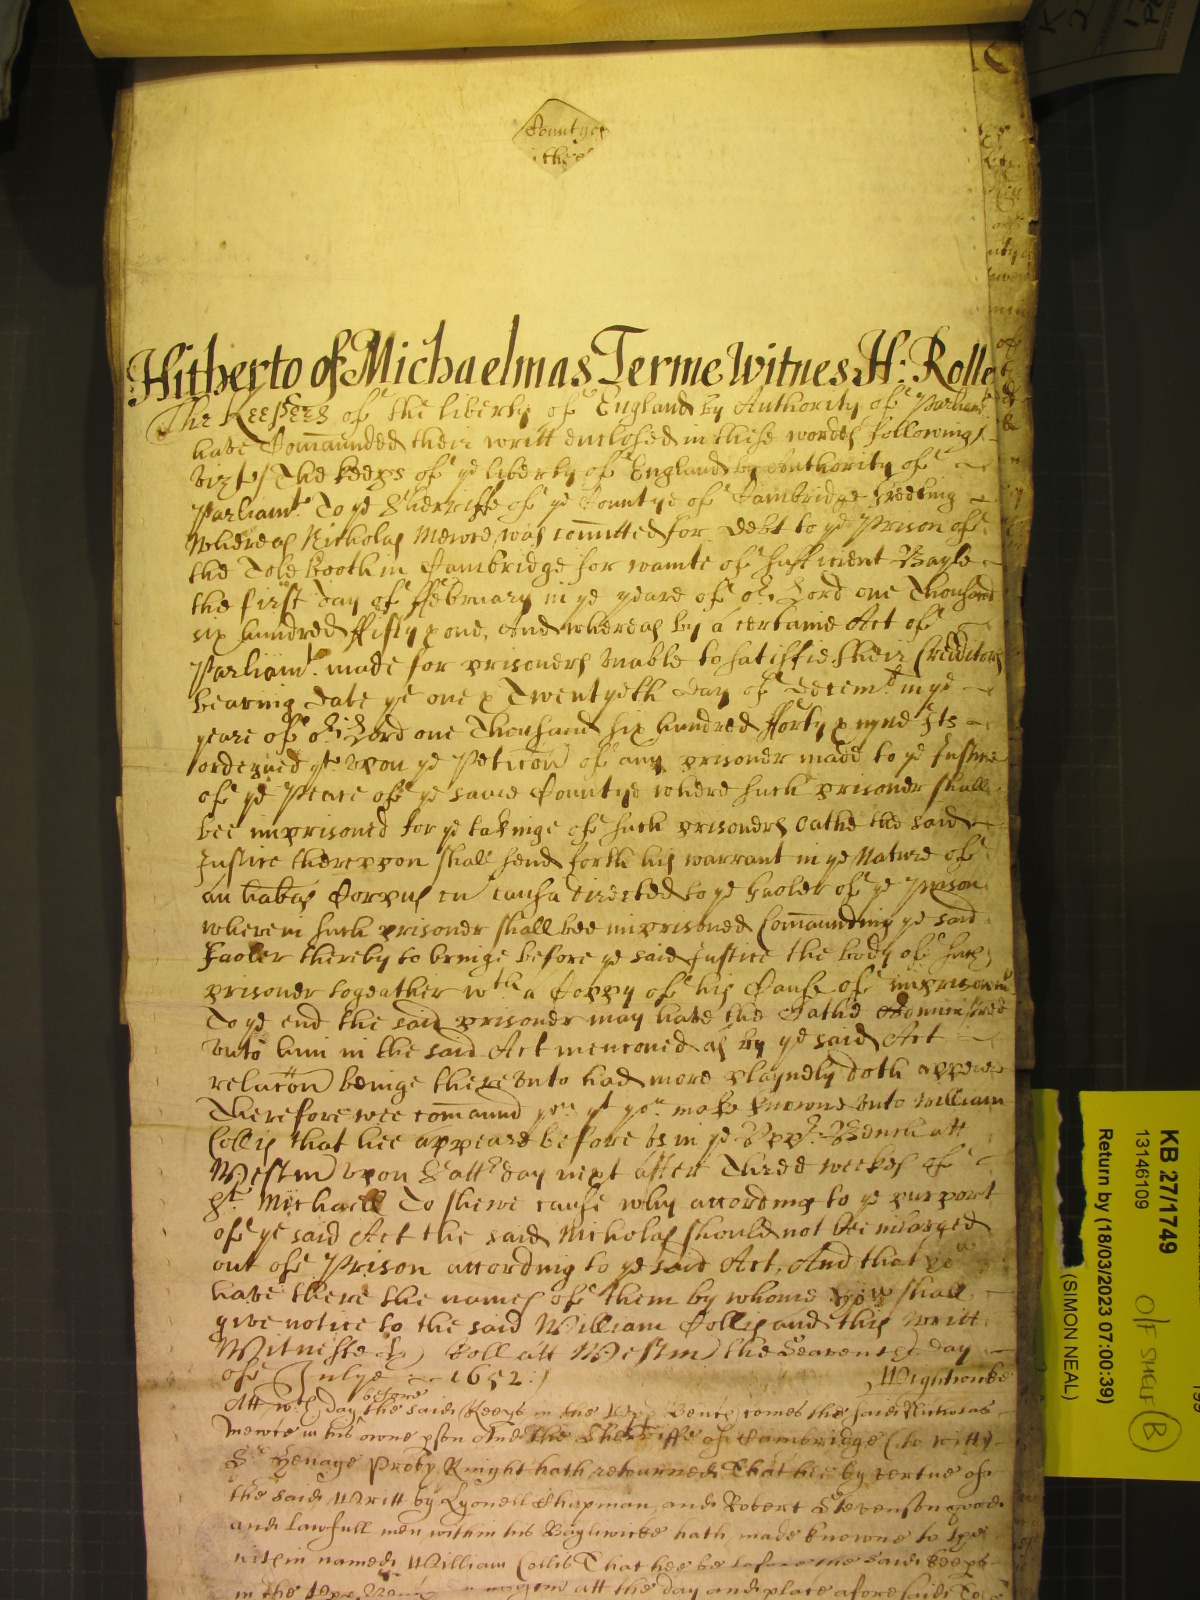 Countye of
Hitherto of Michaelmas Terme Witnes H: Rolle
The Keepers of the liberty of England by Authority of Parliamt
have Comaunded their writt enclosed in these wordes following
vizt The keeps of ye liberty of England by Authority of
Parliamt. To ye Sherriffe of ye Countye of Cambridge Greeting
Whereas Nicholas Mewce was comitted for debt to ye Prison of
the Tole booth in Cambridge for wante of sufficient Bayle
the first day of ffebruary in ye yeare of or. Lord one Thousand
six hundred ffifty & one, And whereas by a certaine Act of
Parliamt. made for prisoners unable to satisfie their Creditors
bearing date ye one & Twentyeth day of Decembr in ye
yeare of or. Lord one Thousand six hundred fforty & nyne Itt is
ordeyned yt upon ye Peticon of any prisoner made to ye Justice
of ye Peace of ye same Countye where such prisoner shall
bee imprisoned for ye takinge of such prisoners Oathe the said
Justice thereupon shall send forth his warrant in ye Nature of
an habeas Corpus cu causa directed to ye Gaoler of ye Prison
wherein such prisoner shall bee imprisoned Comaunding ye said
Gaoler thereby to bringe before ye said Justice the body of such
prisoner togeather wth a Coppy of his Cause of imprisonmt
To ye end the said prisoner may have the Oathe Administred
unto him in the said Act menconed as by ye said Act
relacon beinge thereunto had more playnely doth appeare
Therefore wee comaund you yt you make knowne unto William
Collis that hee appeare before us in ye Uppr. Bench att
Westm upon Satt day next after Three weekes of
St. Michaell To shewe cause why according to ye purport
of ye said Act the said Nicholas should not bee inlarged
out of Prison according to ye said Act, And that you
have there the names of them by whome you shall
give notice to the said William Collis and this writt
Witnesse H Roll att Westm the Seaventh day
of Julye 1652
Wightwicke
Att wch day before the said Keeps in the Uppr Bench comes the said Nicholas
Mewce in his owne pson And the Sherriffe of Cambridge (to witt)
Sr. Henage Proby Knight hath retourned That hee by vertue of
the said Writt by Lyonell Chapman and Robert Stevenson good
and lawfull men within his Baylwicke hath made knowne to the
within named William Collis That hee be before the said Keeps
in the Uppr Bench att the day and place aforesaid To
KB 27/1749
13146109
Return by (18/03/2023 07:00:39)
(SIMON NEAL)
O/F SHELF B